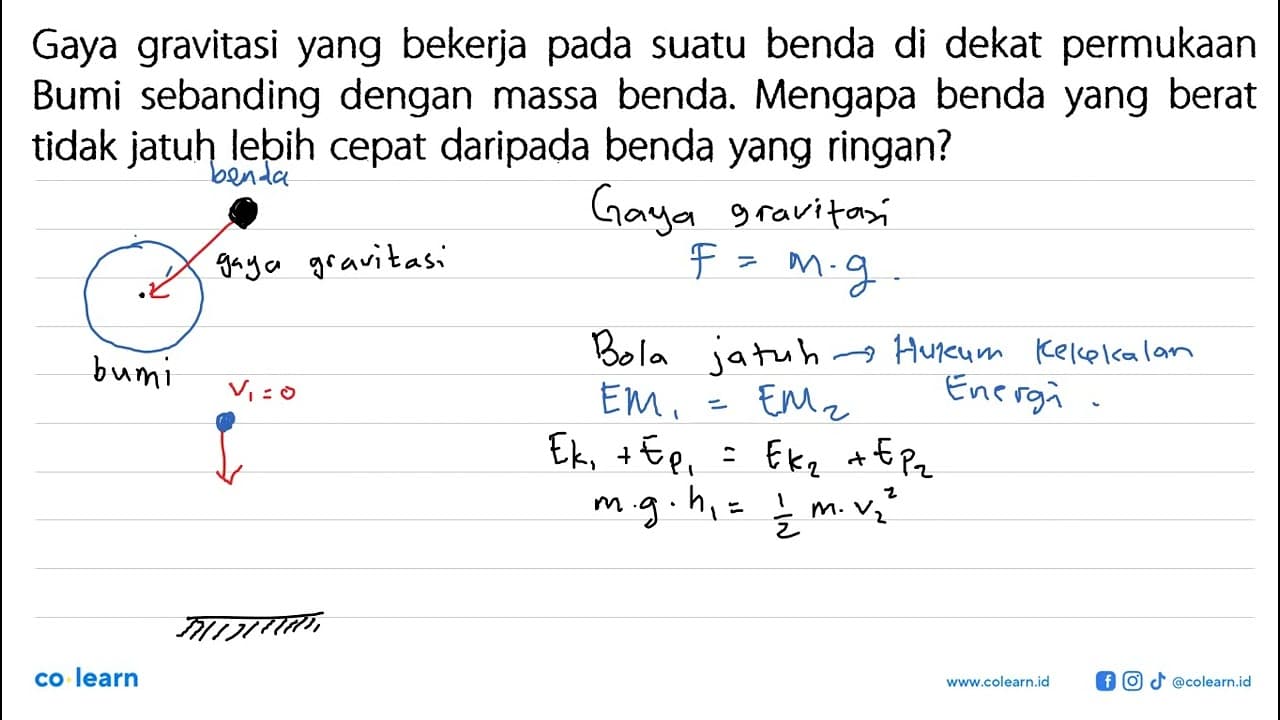 Gaya gravitasi yang bekerja pada suatu benda di dekat permukaan
Bumi sebanding dengan massa benda. Mengapa benda yang berat
tidak jatuh lebih cepat daripada benda yang ringan?
benda
gaya gravitasi
bumi
V₁ = 0
Gaya gravitasi
F = m . g .
Bola jatuh → Hukum Kekekalan
Energi .
EM₁ = EM₂
Ek₁ + Ep₁ = Ek₂ + Ep₂
m . g . h₁ = 1/2 m . v₂²
co learn
www.colearn.id
@colearn.id